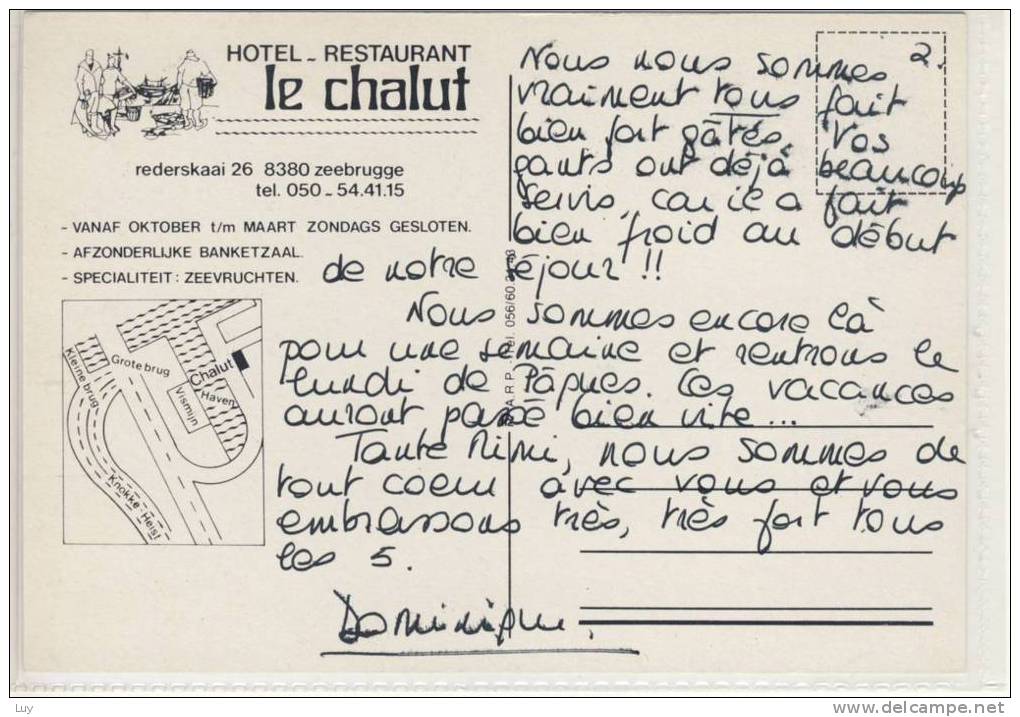 HOTEL - RESTAURANT
le chalut
rederskaai 26 8380 zeebrugge
tel. 050 - 54.41.15
- VANAF OKTOBER t/m MAART ZONDAGS GESLOTEN.
- AFZONDERLIJKE BANKETZAAL.
- SPECIALITEIT: ZEEVRUCHTEN.
Kleine brug
Grote brug
Chalut
Haven
Vismijn
Knokke-Heist
2.
Nous nous sommes
vraiment tous fait
bien fort gâtés. Vos
gants ont déjà beaucoup
servis, car il a fait
bien froid au début
de notre séjour !!
Nous sommes encore là
pour une semaine et rentrons le
lundi de Pâques. Ces vacances
auront passé bien vite...
Tante Mimi, nous sommes de
tout coeur avec vous et vous
embrassons très, très fort tous
les 5.
Dominique.
Tel. 056/60
Luy
www.delcampe.net